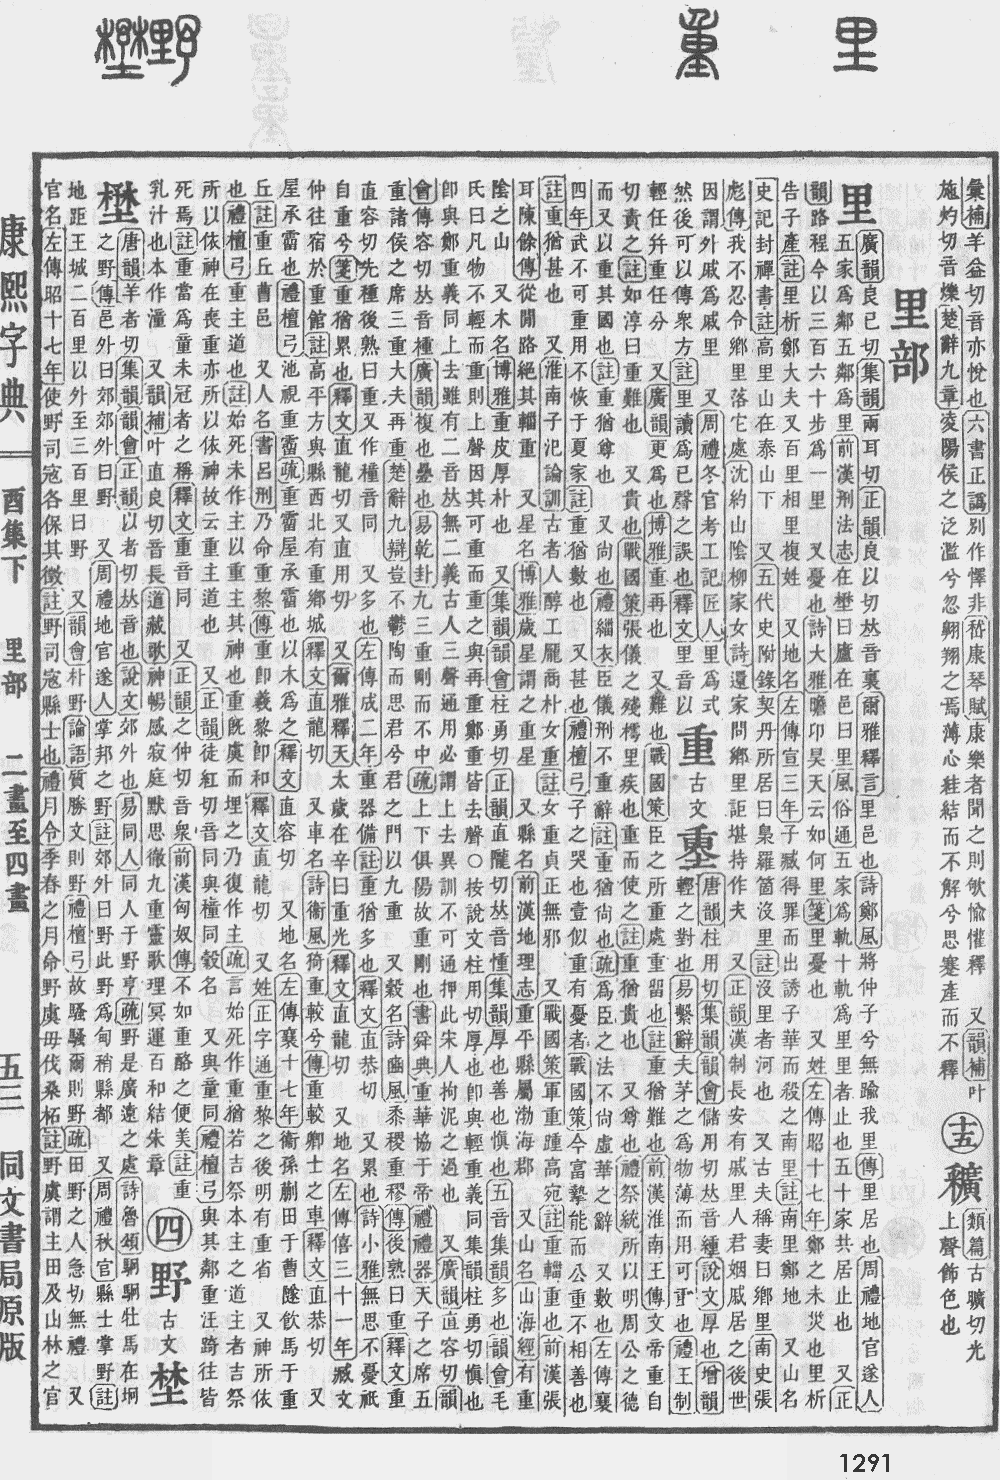 里 重 野 壄
彙補羊益切音亦悅也六書正譌別作懌非嵇康琴賦康樂者聞之則欨愉懽釋 又韻補叶
施灼切音爍楚辭九章凌陽侯之泛濫兮忽翱翔之焉薄心絓結而不解兮思蹇產而不釋 十五 䆁 類篇古曠切光上聲飾色也
里部
里 廣韻良已切集韻兩耳切正韻良以切𠀤音裏爾雅釋言里邑也詩鄭風將仲子兮無踰我里傳里居也周禮地官遂人
五家爲鄰五鄰爲里前漢刑法志在壄曰廬在邑曰里風俗通五家爲軌十軌爲里里者止也五十家共居止也 又正
韻路程今以三百六十步爲一里 又憂也詩大雅瞻卬昊天云如何里箋里憂也 又姓左傳昭十七年鄭之未災也里析
告子產註里析鄭大夫又百里相里複姓 又地名左傳宣三年子臧得罪而出誘子華而殺之南里註南里鄭地 又山名
史記封禪書註高里山在泰山下 又五代史附錄契丹所居曰梟羅箇沒里註沒里者河也 又古夫稱妻曰鄕里南史張
彪傳我不忍令鄕里落它處沈約山陰柳家女詩還家問鄕里詎堪持作夫 又正韻漢制長安有戚里人君姻戚居之後世
因謂外戚爲戚里 又周禮冬官考工記匠人里爲式
然後可以傳衆方註里讀爲已聲之誤也釋文里音以 重 古文 𡍴 唐韻柱用切集韻韻會儲用切𠀤音緟說文厚也增韻
輕任幷重任分 又廣韻更爲也博雅重再也 又難也戰國策臣之所重處重留也註重猶難也前漢淮南王傳文帝重自
輕之對也易繫辭夫茅之爲物薄而用可重也禮王制
切責之註如淳曰重難也 又貴也戰國策張儀之殘樗里疾也重而使之註重猶貴也 又尊也禮祭統所以明周公之德
而又以重其國也註重猶尊也 又尙也禮緇衣臣儀刑不重辭註重猶尙也疏爲臣之法不尙虛華之辭 又數也左傳襄
四年武不可重用不恢于夏家註重猶數也 又甚也禮檀弓子之哭也壹似重有憂者戰國策今富摯能而公重不相善也
註重猶甚也 又淮南子氾論訓古者人醇工龐商朴女重註女重貞正無邪 又戰國策軍重踵高宛註重輜重也前漢張
耳陳餘傳從閒路絕其輜重 又星名博雅歲星謂之重星 又縣名前漢地理志重平縣屬渤海郡 又山名山海經有重
陰之山 又木名博雅重皮厚朴也 又集韻韻會柱勇切正韻直隴切𠀤音㣫集韻厚也善也愼也五音集韻多也韻會毛
氏曰凡物不輕而重則上聲因其可重而重之與再重鄭重皆去聲○按說文柱用切厚也卽與輕重義同集韻柱勇切愼也
卽與鄭重義同上去雖有二音𠀤無二義古人三聲通用必謂上去異訓不可通押此宋人拘泥之過也 又廣韻直容切韻
會傳容切𠀤音種廣韻複也疊也易乾卦九三重剛而不中疏上下俱陽故重剛也書舜典重華協于帝禮禮器天子之席五
重諸侯之席三重大夫再重楚辭九辯豈不鬱陶而思君兮君之門以九重 又穀名詩豳風黍稷重穋傳後熟曰重釋文重
直容切先種後熟曰重又作種音同 又多也左傳成二年重器備註重猶多也釋文直恭切 又累也詩小雅無思不憂祇
自重兮箋重猶累也釋文直龍切又直用切 又爾雅釋天太歲在辛曰重光釋文直龍切 又地名左傳僖三十一年臧文
仲往宿於重館註高平方與縣西北有重鄕城釋文直龍切 又車名詩衞風猗重較兮傳重較卿士之車釋文直恭切 又
屋承霤也禮檀弓池視重霤疏重霤屋承霤也以木爲之釋文直容切 又地名左傳襄十七年衞孫蒯田于曹隧飮馬于重
丘註重丘曹邑 又人名書呂刑乃命重黎傳重卽羲黎卽和釋文直龍切 又姓正字通重黎之後明有重省 又神所依
也禮檀弓重主道也註始死未作主以重主其神也重旣虞而埋之乃復作主疏言始死作重猶若吉祭木主之道主者吉祭
所以依神在喪重亦所以依神故云重主道也 又正韻徒紅切音同與橦同穀名 又與童同禮檀弓與其鄰重汪踦往皆
死焉註重當爲童未冠者之稱釋文重音同 又正韻之仲切音衆前漢匈奴傳不如重酪之便美註重
乳汁也本作湩 又韻補叶直良切音長道藏歌神暢感寂庭默思徹九重靈歌理冥運百和結朱章 四 野 古文 埜
壄 唐韻羊者切集韻韻會正韻以者切𠀤音也說文郊外也易同人同人于野亨疏野是廣遠之處詩魯頌駉駉牡馬在坰
之野傳邑外曰郊郊外曰野 又周禮地官遂人掌邦之野註郊外曰野此野爲甸稍縣都 又周禮秋官縣士掌野註
地距王城二百里以外至三百里曰野 又韻會朴野論語質勝文則野禮檀弓故騷騷爾則野疏田野之人急切無禮 又
官名左傳昭十七年使野司寇各保其徵註野司寇縣士也禮月令季春之月命野虞毋伐桑柘註野虞謂主田及山林之官
康熙字典 酉集下 里部 二畫至四畫 五三 同文書局原版
1291